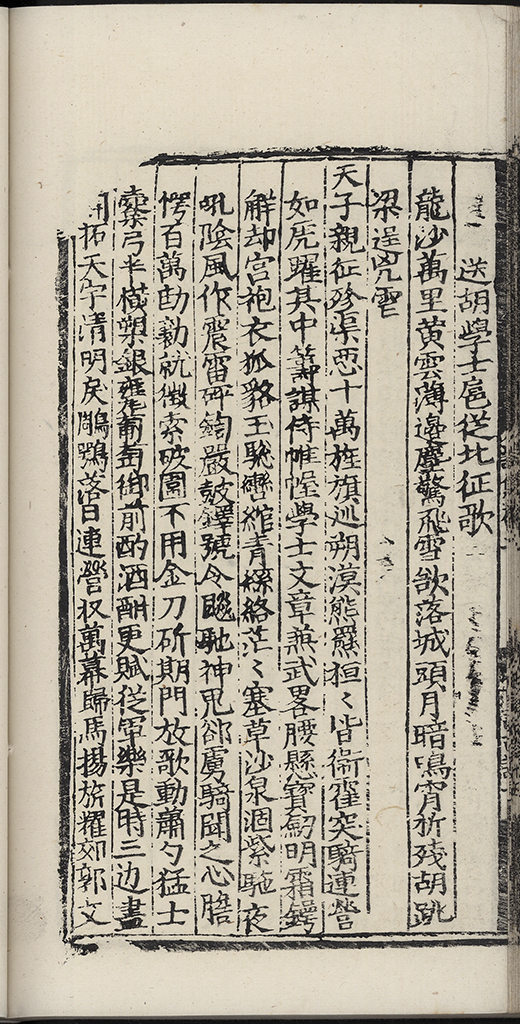 送胡學士扈從北征歌
龍沙萬里黄雲薄邊塵驚飛雪欲落城頭月暗鳴宵柝殘胡跳
梁逞兇虐
天子親征殄渠惡十萬旌旗巡朔漠熊羆桓〻皆衛霍突騎連營
如虎躍其中籌謀侍帷幄學士文章兼武畧腰懸寶劒明霜鍔
觧却宫袍衣狐貉玉驄轡綰青絲絡茫〻塞草沙泉涸紫駞夜
吼陰風作震雷砰鍧嚴鼓鐸號令飈馳神鬼郤虜騎聞之心膽
愕百萬勍就徴索破圍不用金刀斫期門放歌動蕭勺猛士
櫜弓半横槊銀甕葡萄御前酌酒酣更賦從軍樂是時三边盡
開拓天宇清明戾鵰鶚落日連營收萬幕歸馬揚旂耀郊郭文